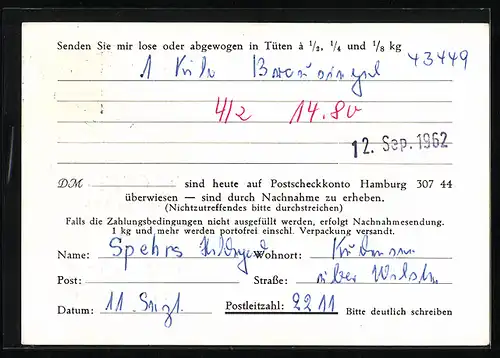 Senden Sie mir lose oder abgewogen in Tüten à 1/2, 1/4 und 1/8 kg
43449
1 Kilo
4/2 14.80
12. Sep. 1962
DM sind heute auf Postscheckkonto Hamburg 307 44
überwiesen — sind durch Nachnahme zu erheben.
(Nichtzutreffendes bitte durchstreichen)
Falls die Zahlungsbedingungen nicht ausgefüllt werden, erfolgt Nachnahmesendung.
1 kg und mehr werden portofrei einschl. Verpackung versandt.
Name: Spehrs Wohnort:
Post: Straße: über
Datum: 11. Postleitzahl: 2211 Bitte deutlich schreiben